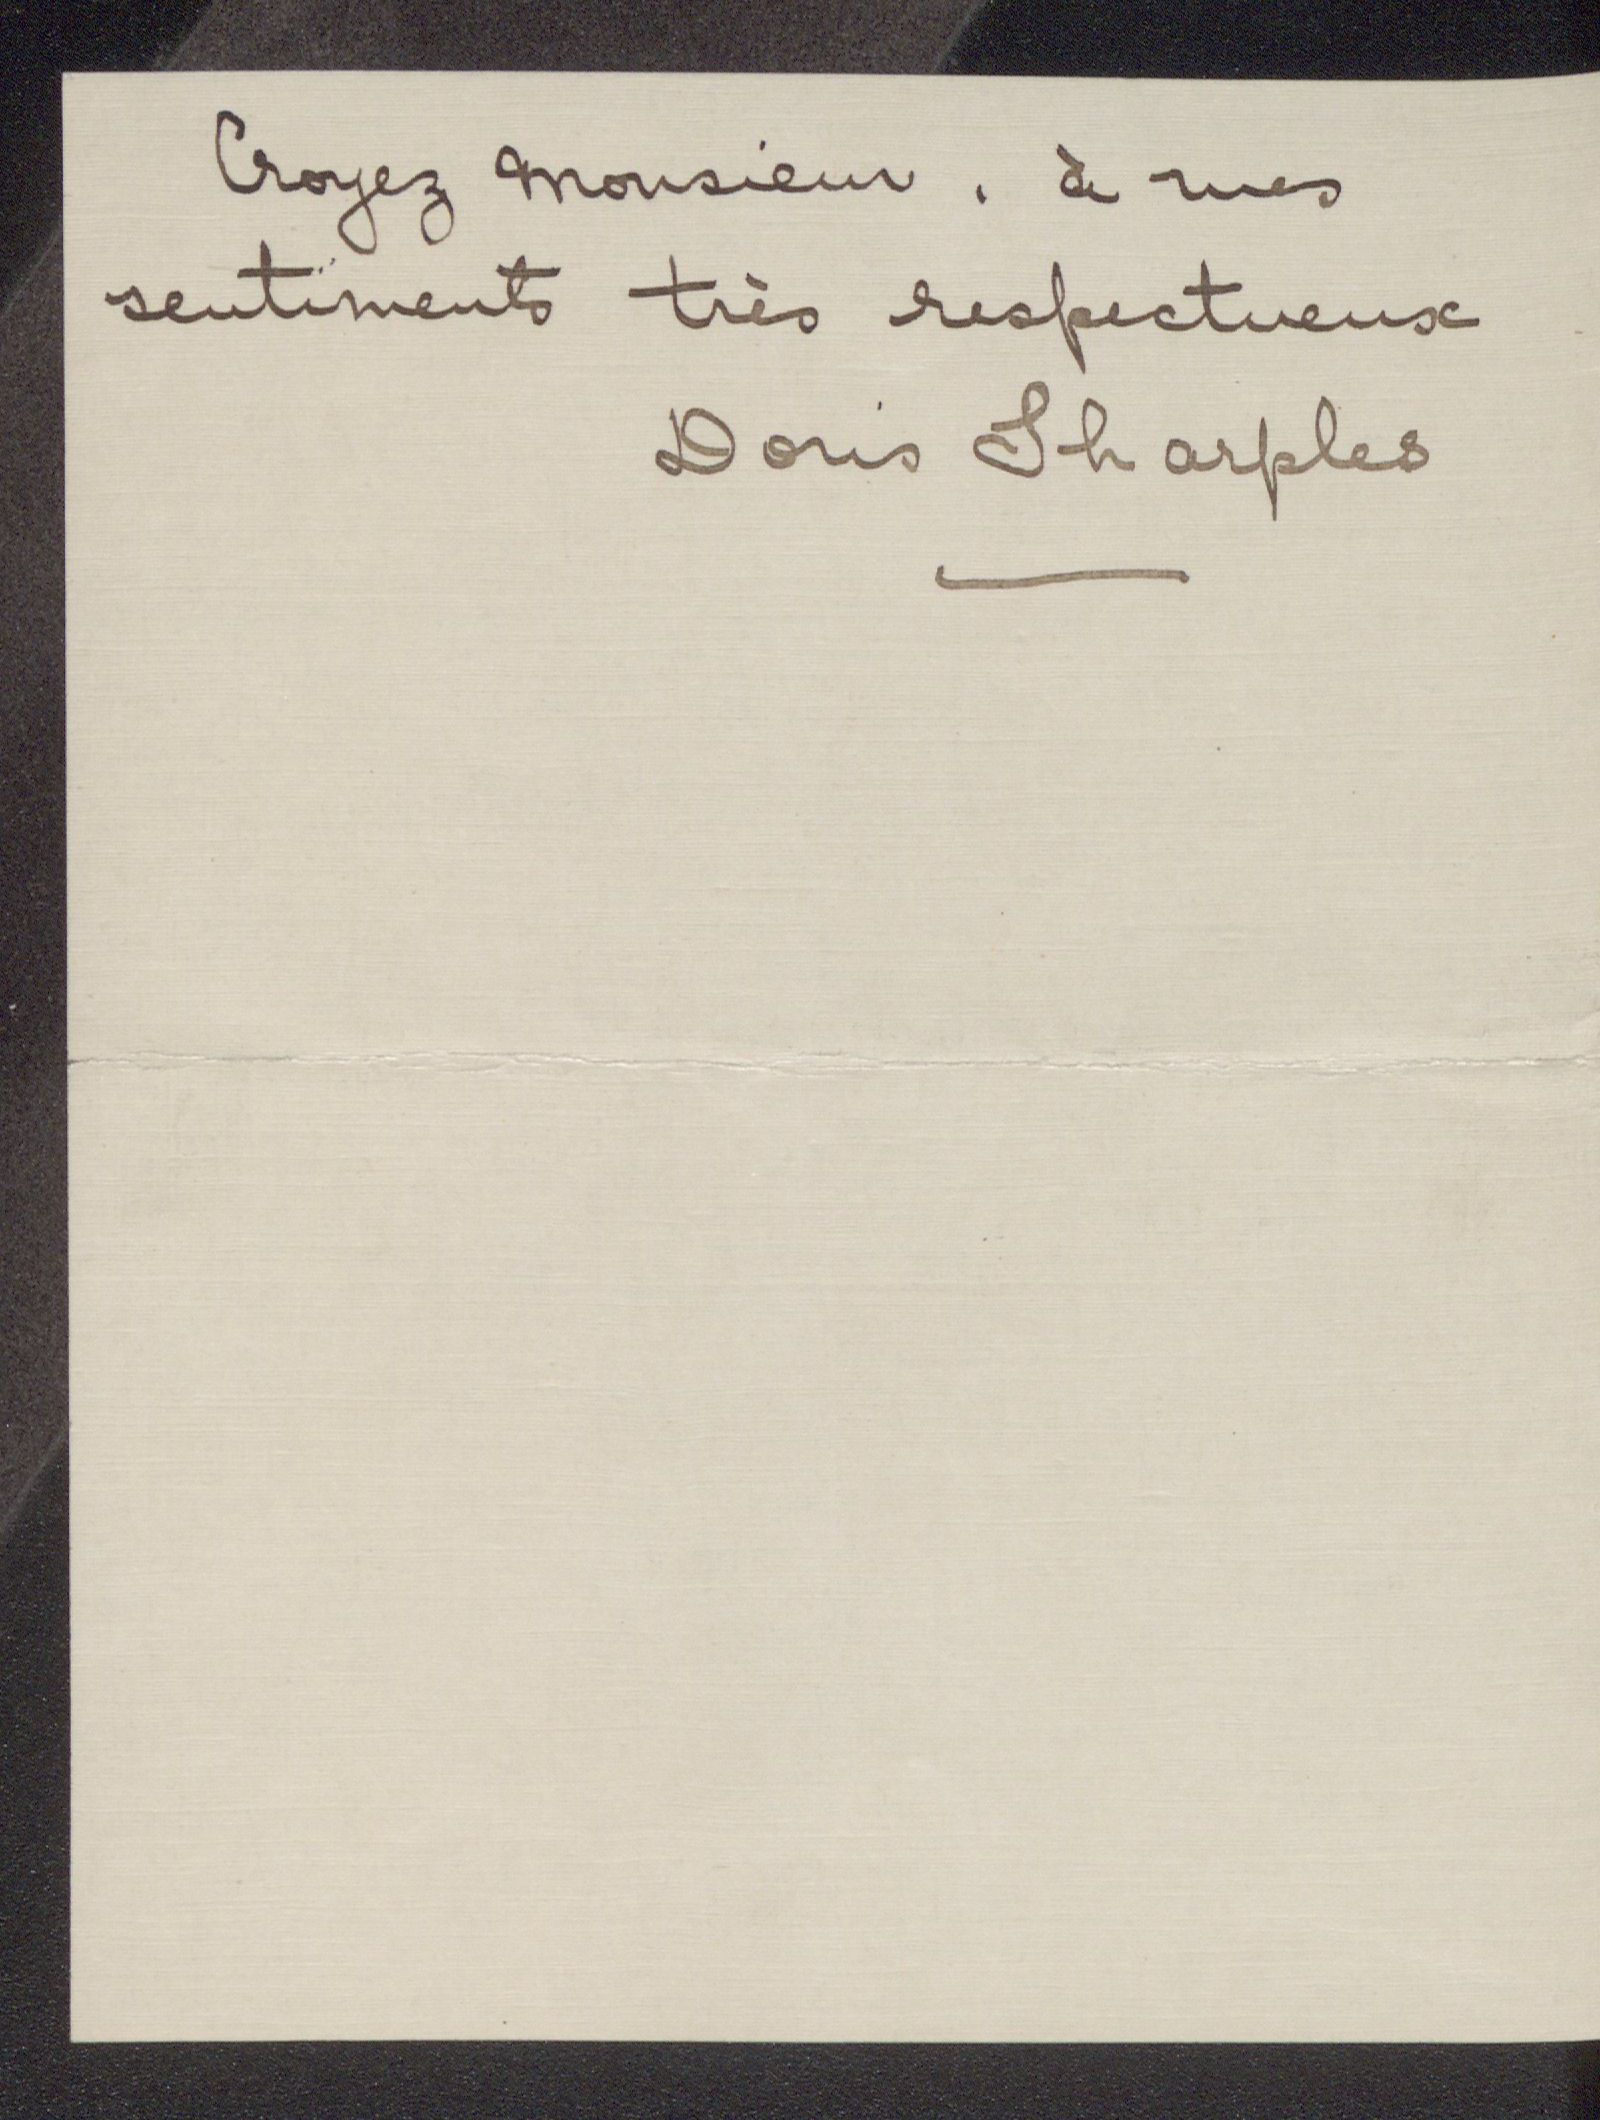 Croyez Monsieur, à mes
sentiments très respectueux
Doris Sharples